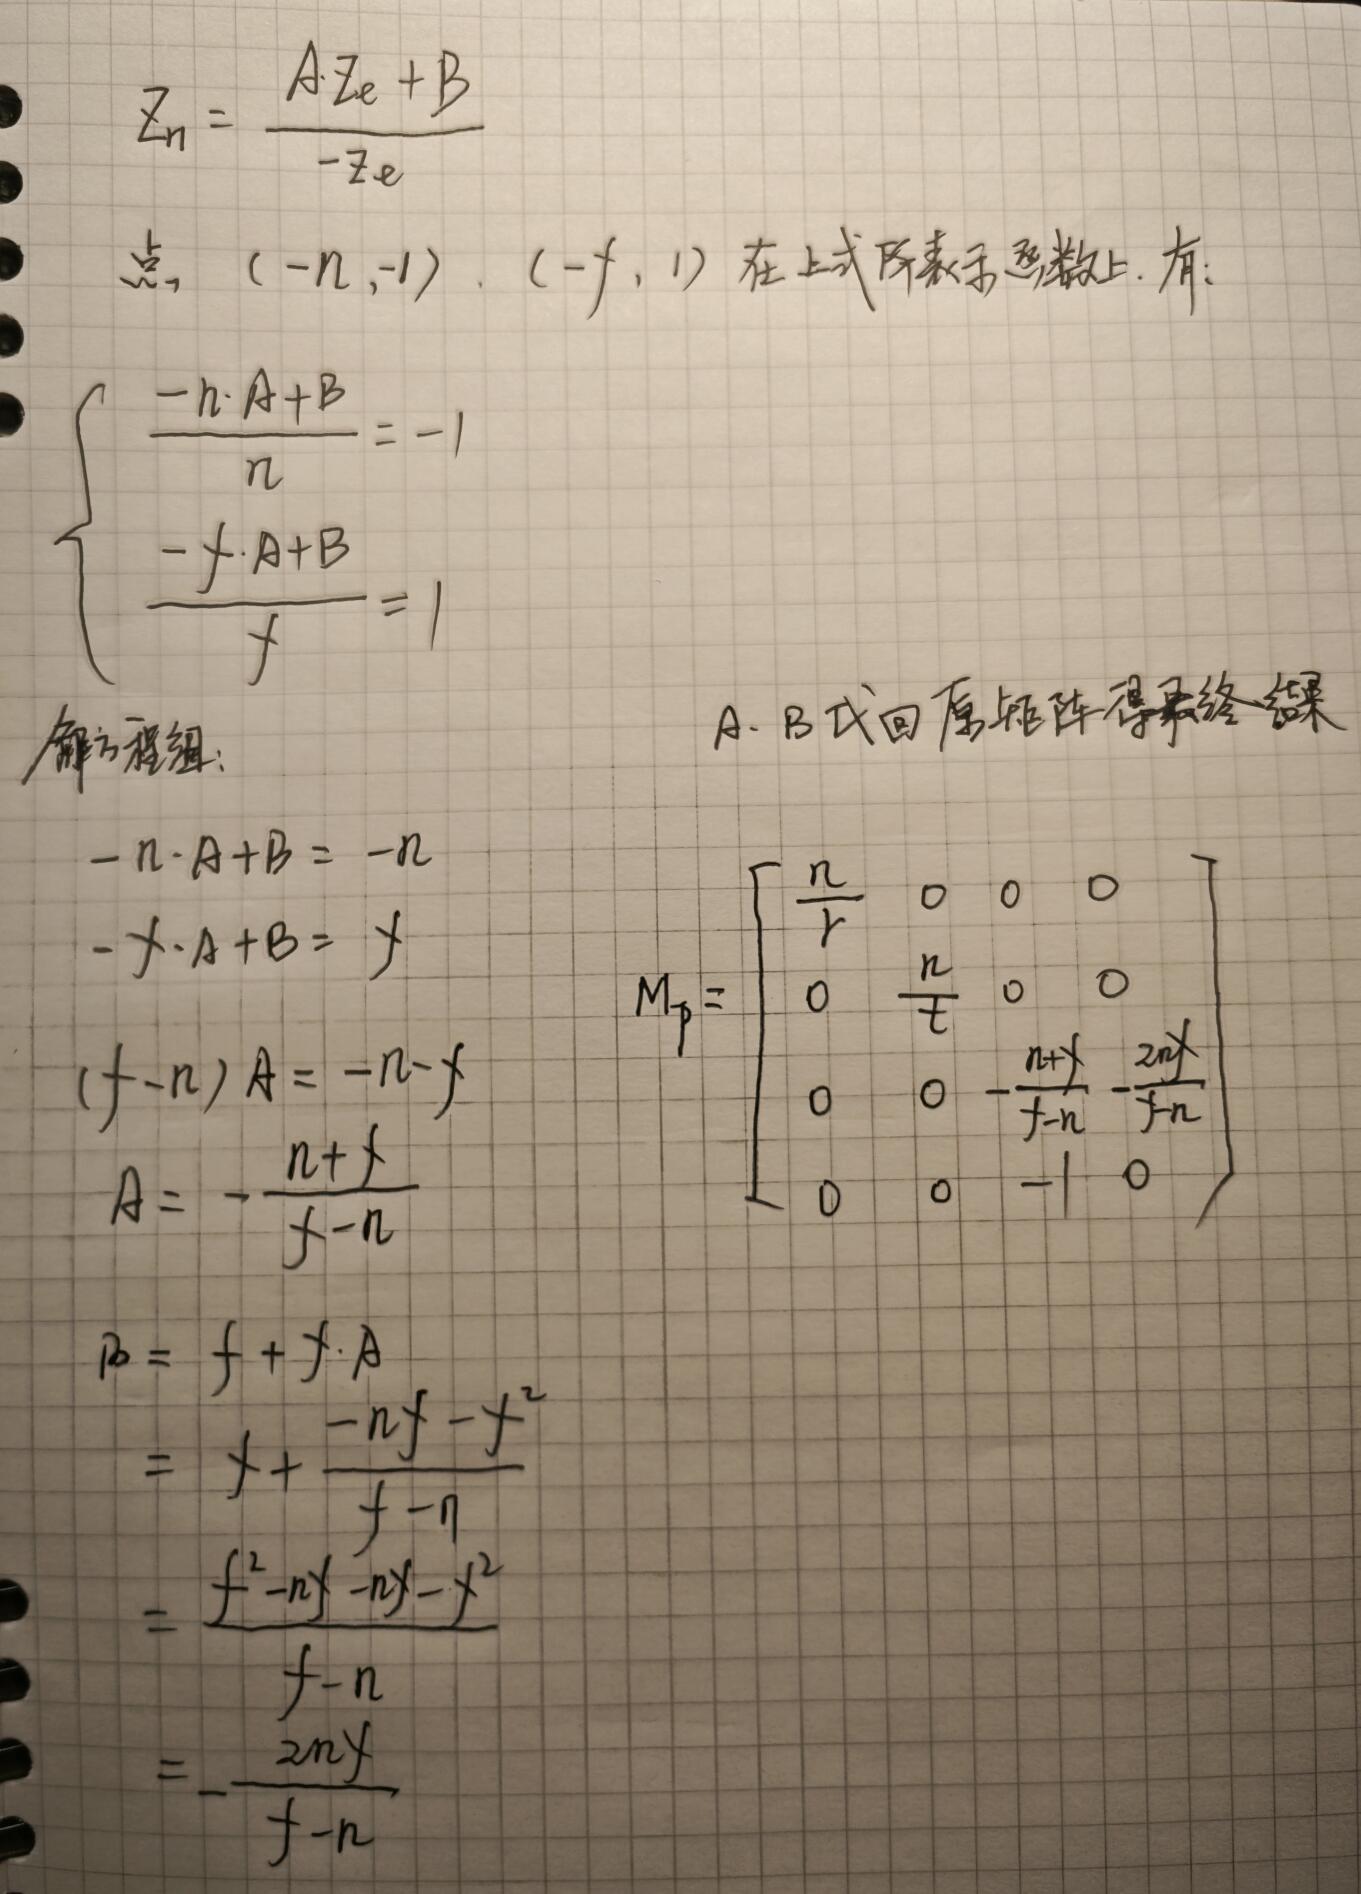 Zn = (A·Ze + B) / (-Ze)
点 (-n, -1)、(-f, 1) 在上式所表示函数上. 有:
{ (-n·A+B) / n = -1
(-f·A+B) / f = 1
解方程组:
-n·A+B = -n
-f·A+B = f
(f-n) A = -n-f
A = - (n+f) / (f-n)
B = f + f·A
= f + (-nf - f²) / (f-n)
= (f² -nf -nf - f²) / (f-n)
= - 2nf / (f-n)
A. B 代回原矩阵得最终结果
Mp = [ n/r 0 0 0
0 n/t 0 0
0 0 -(n+f)/(f-n) -2nf/(f-n)
0 0 -1 0 ]